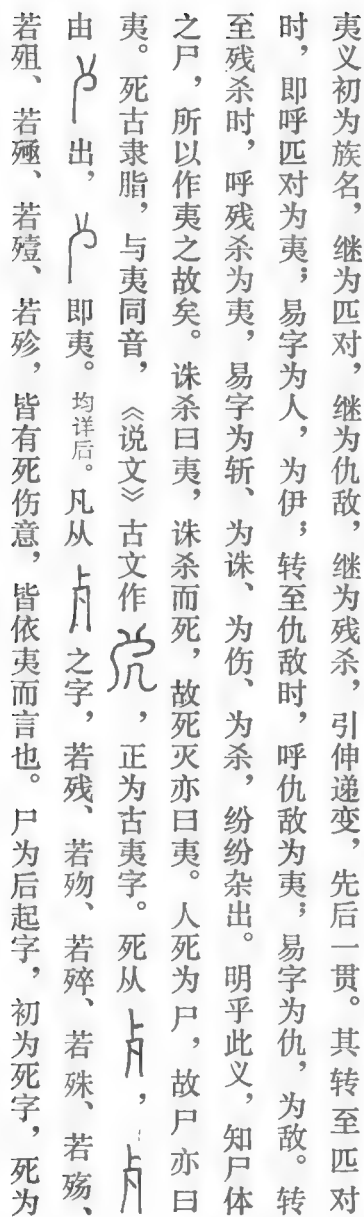 夷义初为族名，继为匹对，继为仇敌，继为残杀，引伸递变，先后一贯。其转至匹对
时，即呼匹对为夷；易字为人，为伊；转至仇敌时，呼仇敌为夷；易字为仇，为敌。转
至残杀时，呼残杀为夷，易字为斩、为诛、为伤、为杀，纷纷杂出。明乎此义，知尸体
之尸，所以作夷之故矣。诛杀曰夷，诛杀而死，故死灭亦曰夷。人死为尸，故尸亦曰
夷。死古隶脂，与夷同音，《说文》古文作，正为古夷字。死从，
由出，即夷。均详后。凡从之字，若残、若歾、若殩、若殊、若殇、
若殂、若殛、若殪、若殄，皆有死伤意，皆依夷而言也。尸为后起字，初为死字，死为